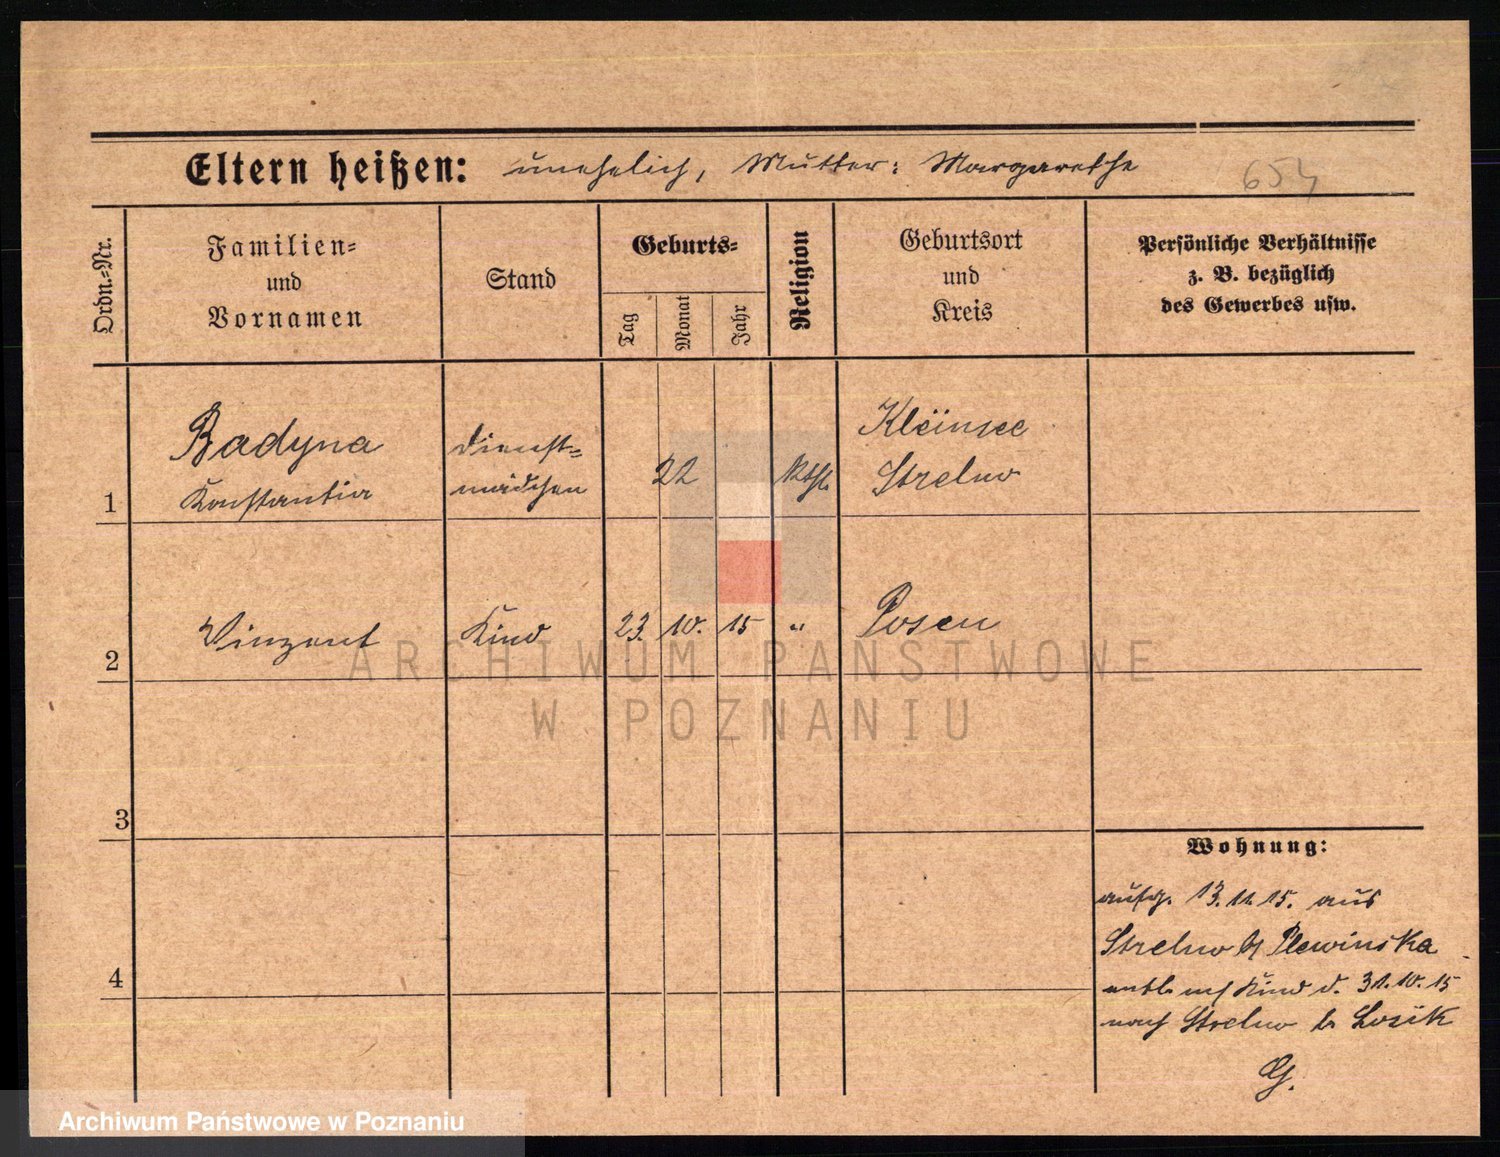 Eltern heißen: unehelich, Mutter: Margarethe
654
Ordn.-Nr.
Familien-
und
Vornamen
Stand
Geburts-
Tag
Monat
Jahr
Religion
Geburtsort
und
Kreis
Persönliche Verhältnisse
z. B. bezüglich
des Gewerbes usw.
1
Badyna
Konstantia
Dienst-
mädchen
22
kath.
Kleinsee
Strelno
2
Vinzent
Kind
23. 10. 15
"
Posen
ARCHIWUM PAŃSTWOWE
W POZNANIU
3
4
Wohnung:
aufg. 13. 11. 15. aus
Strelno b/ Plewinska
entb. mit Kind d. 31. 10. 15
nach Strelno b Losik
G.
Archiwum Państwowe w Poznaniu